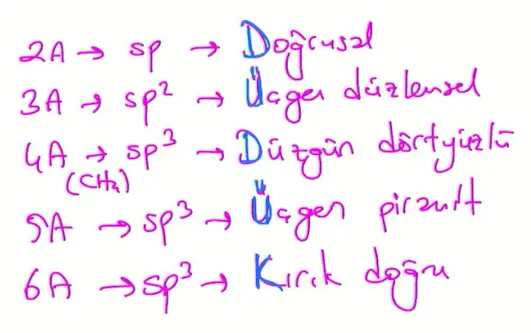 2A → sp → Doğrusal
3A → sp² → Üçgen düzlemsel
4A → sp³ → Düzgün dörtyüzlü
(CH₄)
5A → sp³ → Üçgen piramit
6A → sp³ → Kırık doğru